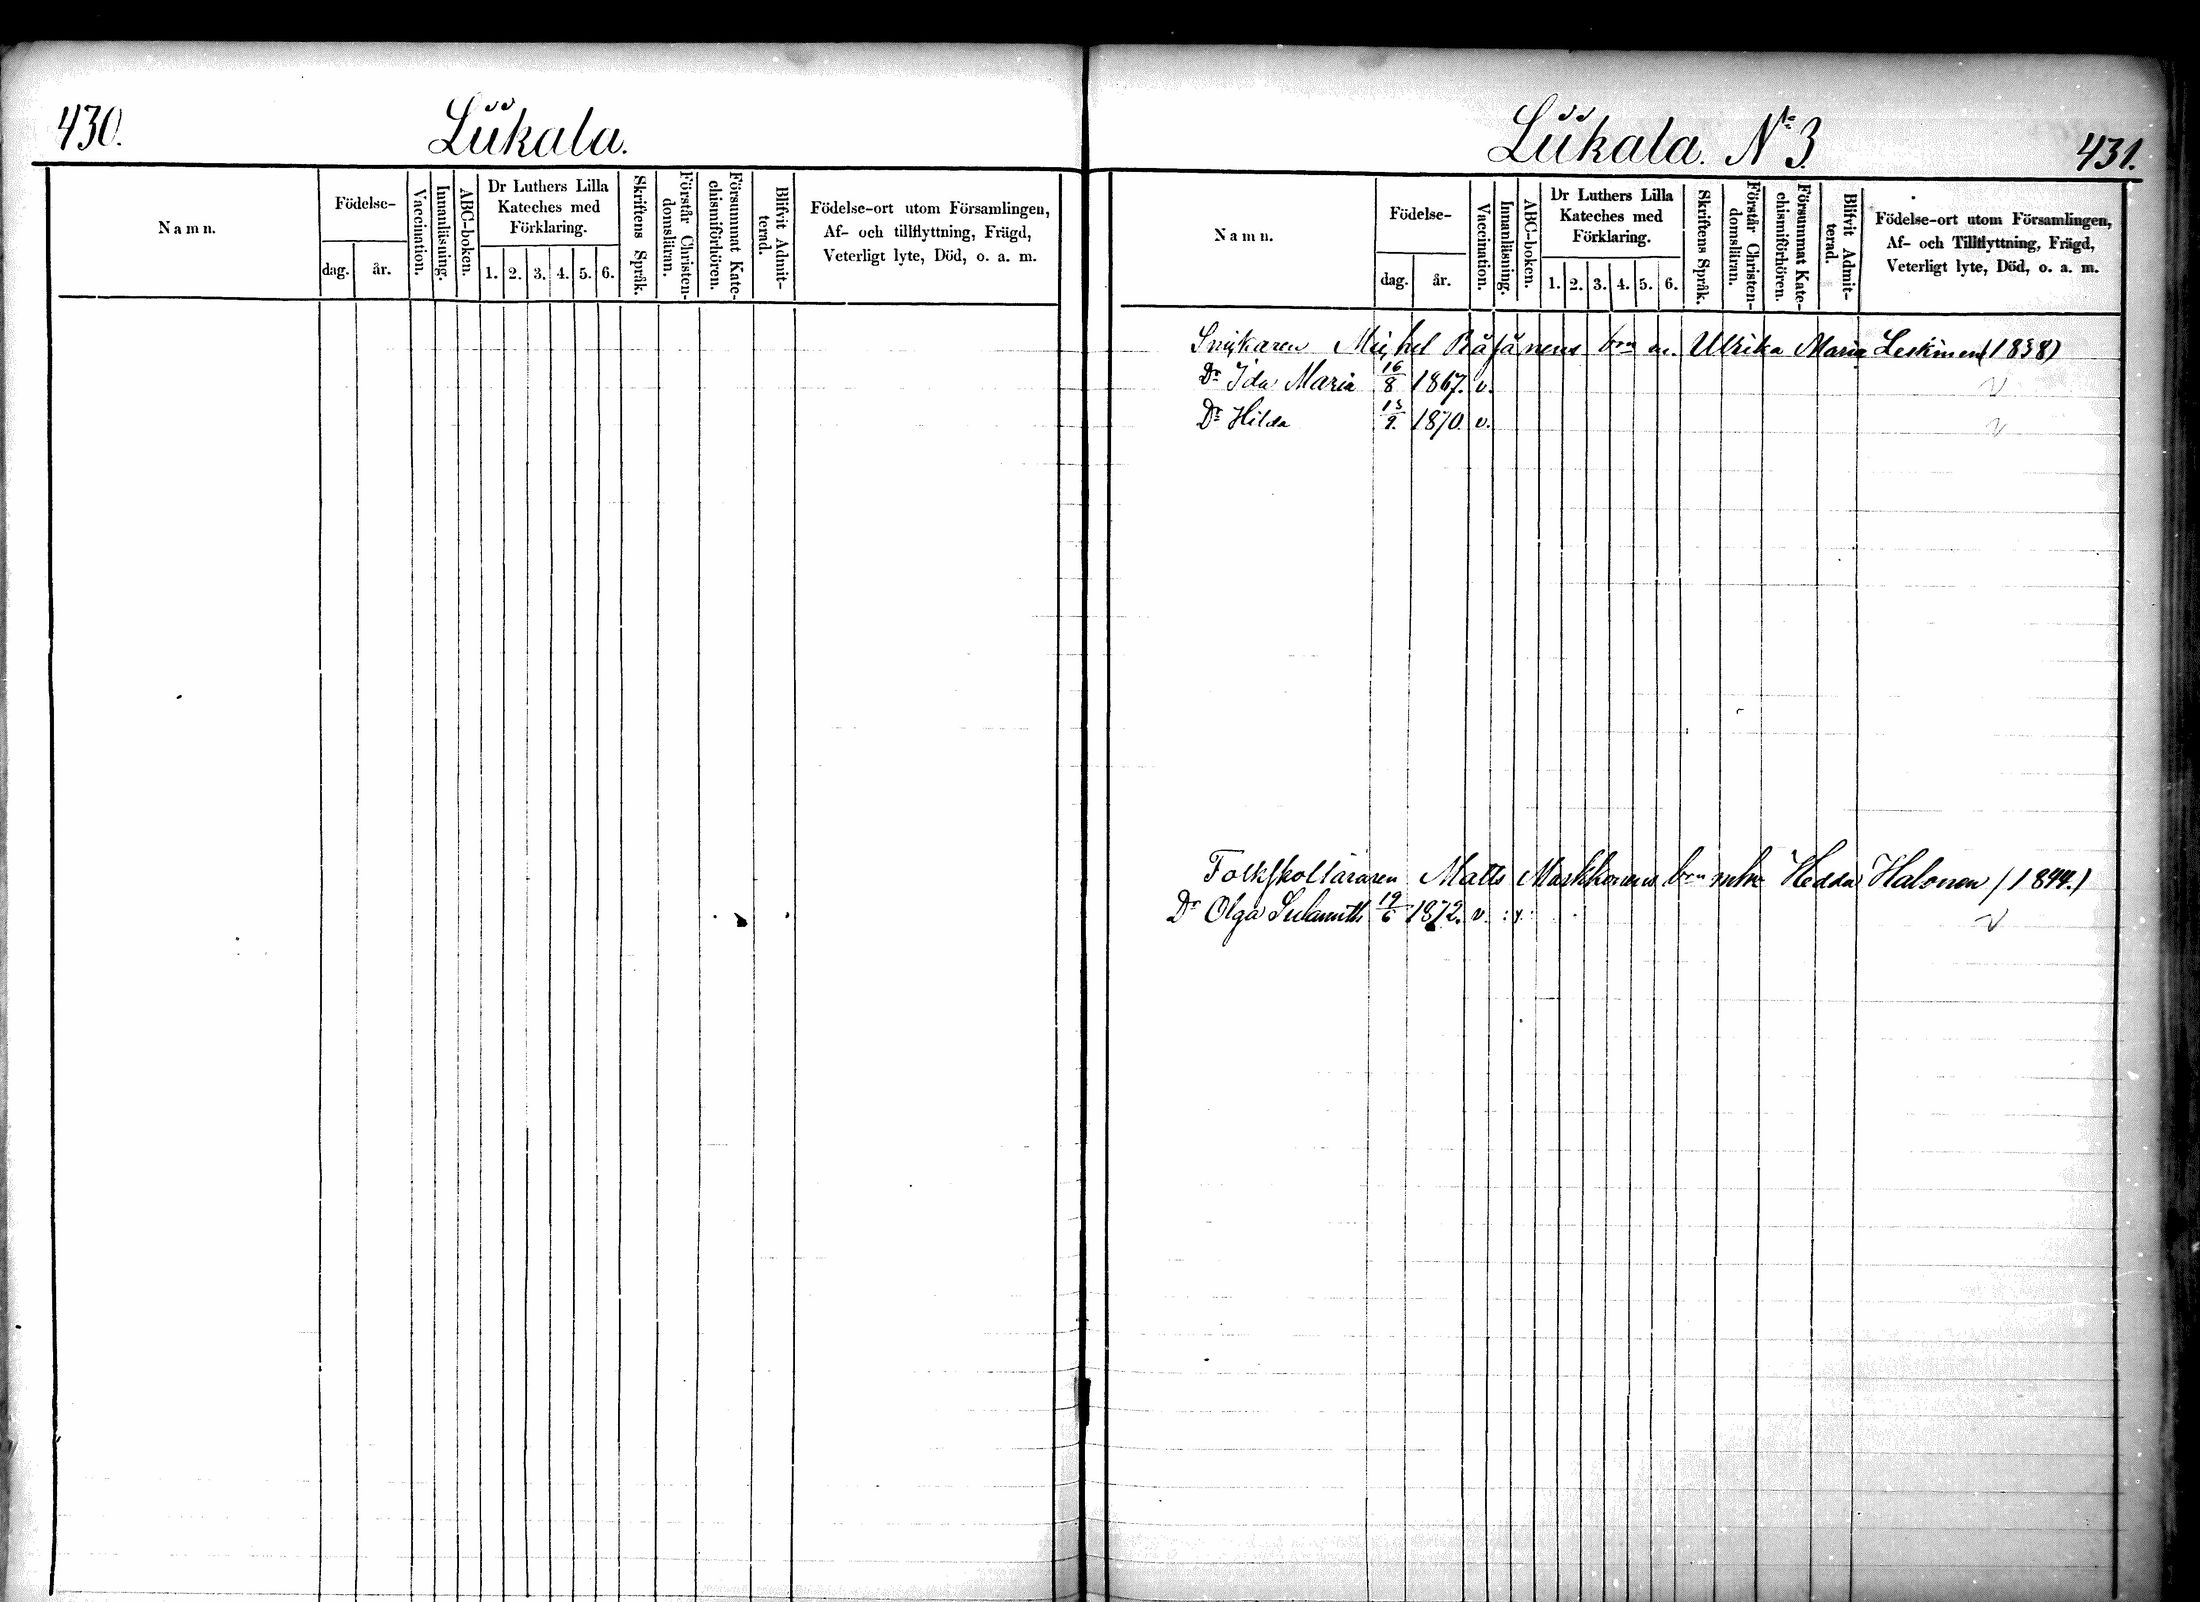 430.
Liikala.
Namn.
Födelse-
dag.
år.
Vaccination.
Innanläsning.
ABC-boken.
Dr Luthers Lilla Kateches med Förklaring.
1. 2. 3. 4. 5. 6.
Skriftens Språk.
Förstår Christen-domsläran.
Försummat Kate-chismiförhören.
Blifvit Admit-terad.
Födelse-ort utom Församlingen,
Af- och tillflyttning, Frägd,
Veterligt lyte, Död, o. a. m.
Liikala. N:o 3.
431.
Namn.
Födelse-
dag.
år.
Vaccination.
Innanläsning.
ABC-boken.
Dr Luthers Lilla Kateches med Förklaring.
1. 2. 3. 4. 5. 6.
Skriftens Språk.
Förstår Christen-domsläran.
Försummat Kate-chismiförhören.
Blifvit Admit-terad.
Födelse-ort utom Församlingen,
Af- och Tillflyttning, Frägd,
Veterligt lyte, Död, o. a. m.
Snickaren Michel Räsänens brn m. Ulrika Maria Leskinen (1838)
Dr Ida Maria 16/8 1867. v.
Dr Hilda 13/9. 1870. v.
Folkskolläraren Matts Markkanens brn m hu Hedda Halonen (1844.)
Dr Olga Sulamith 19/6 1872. v.